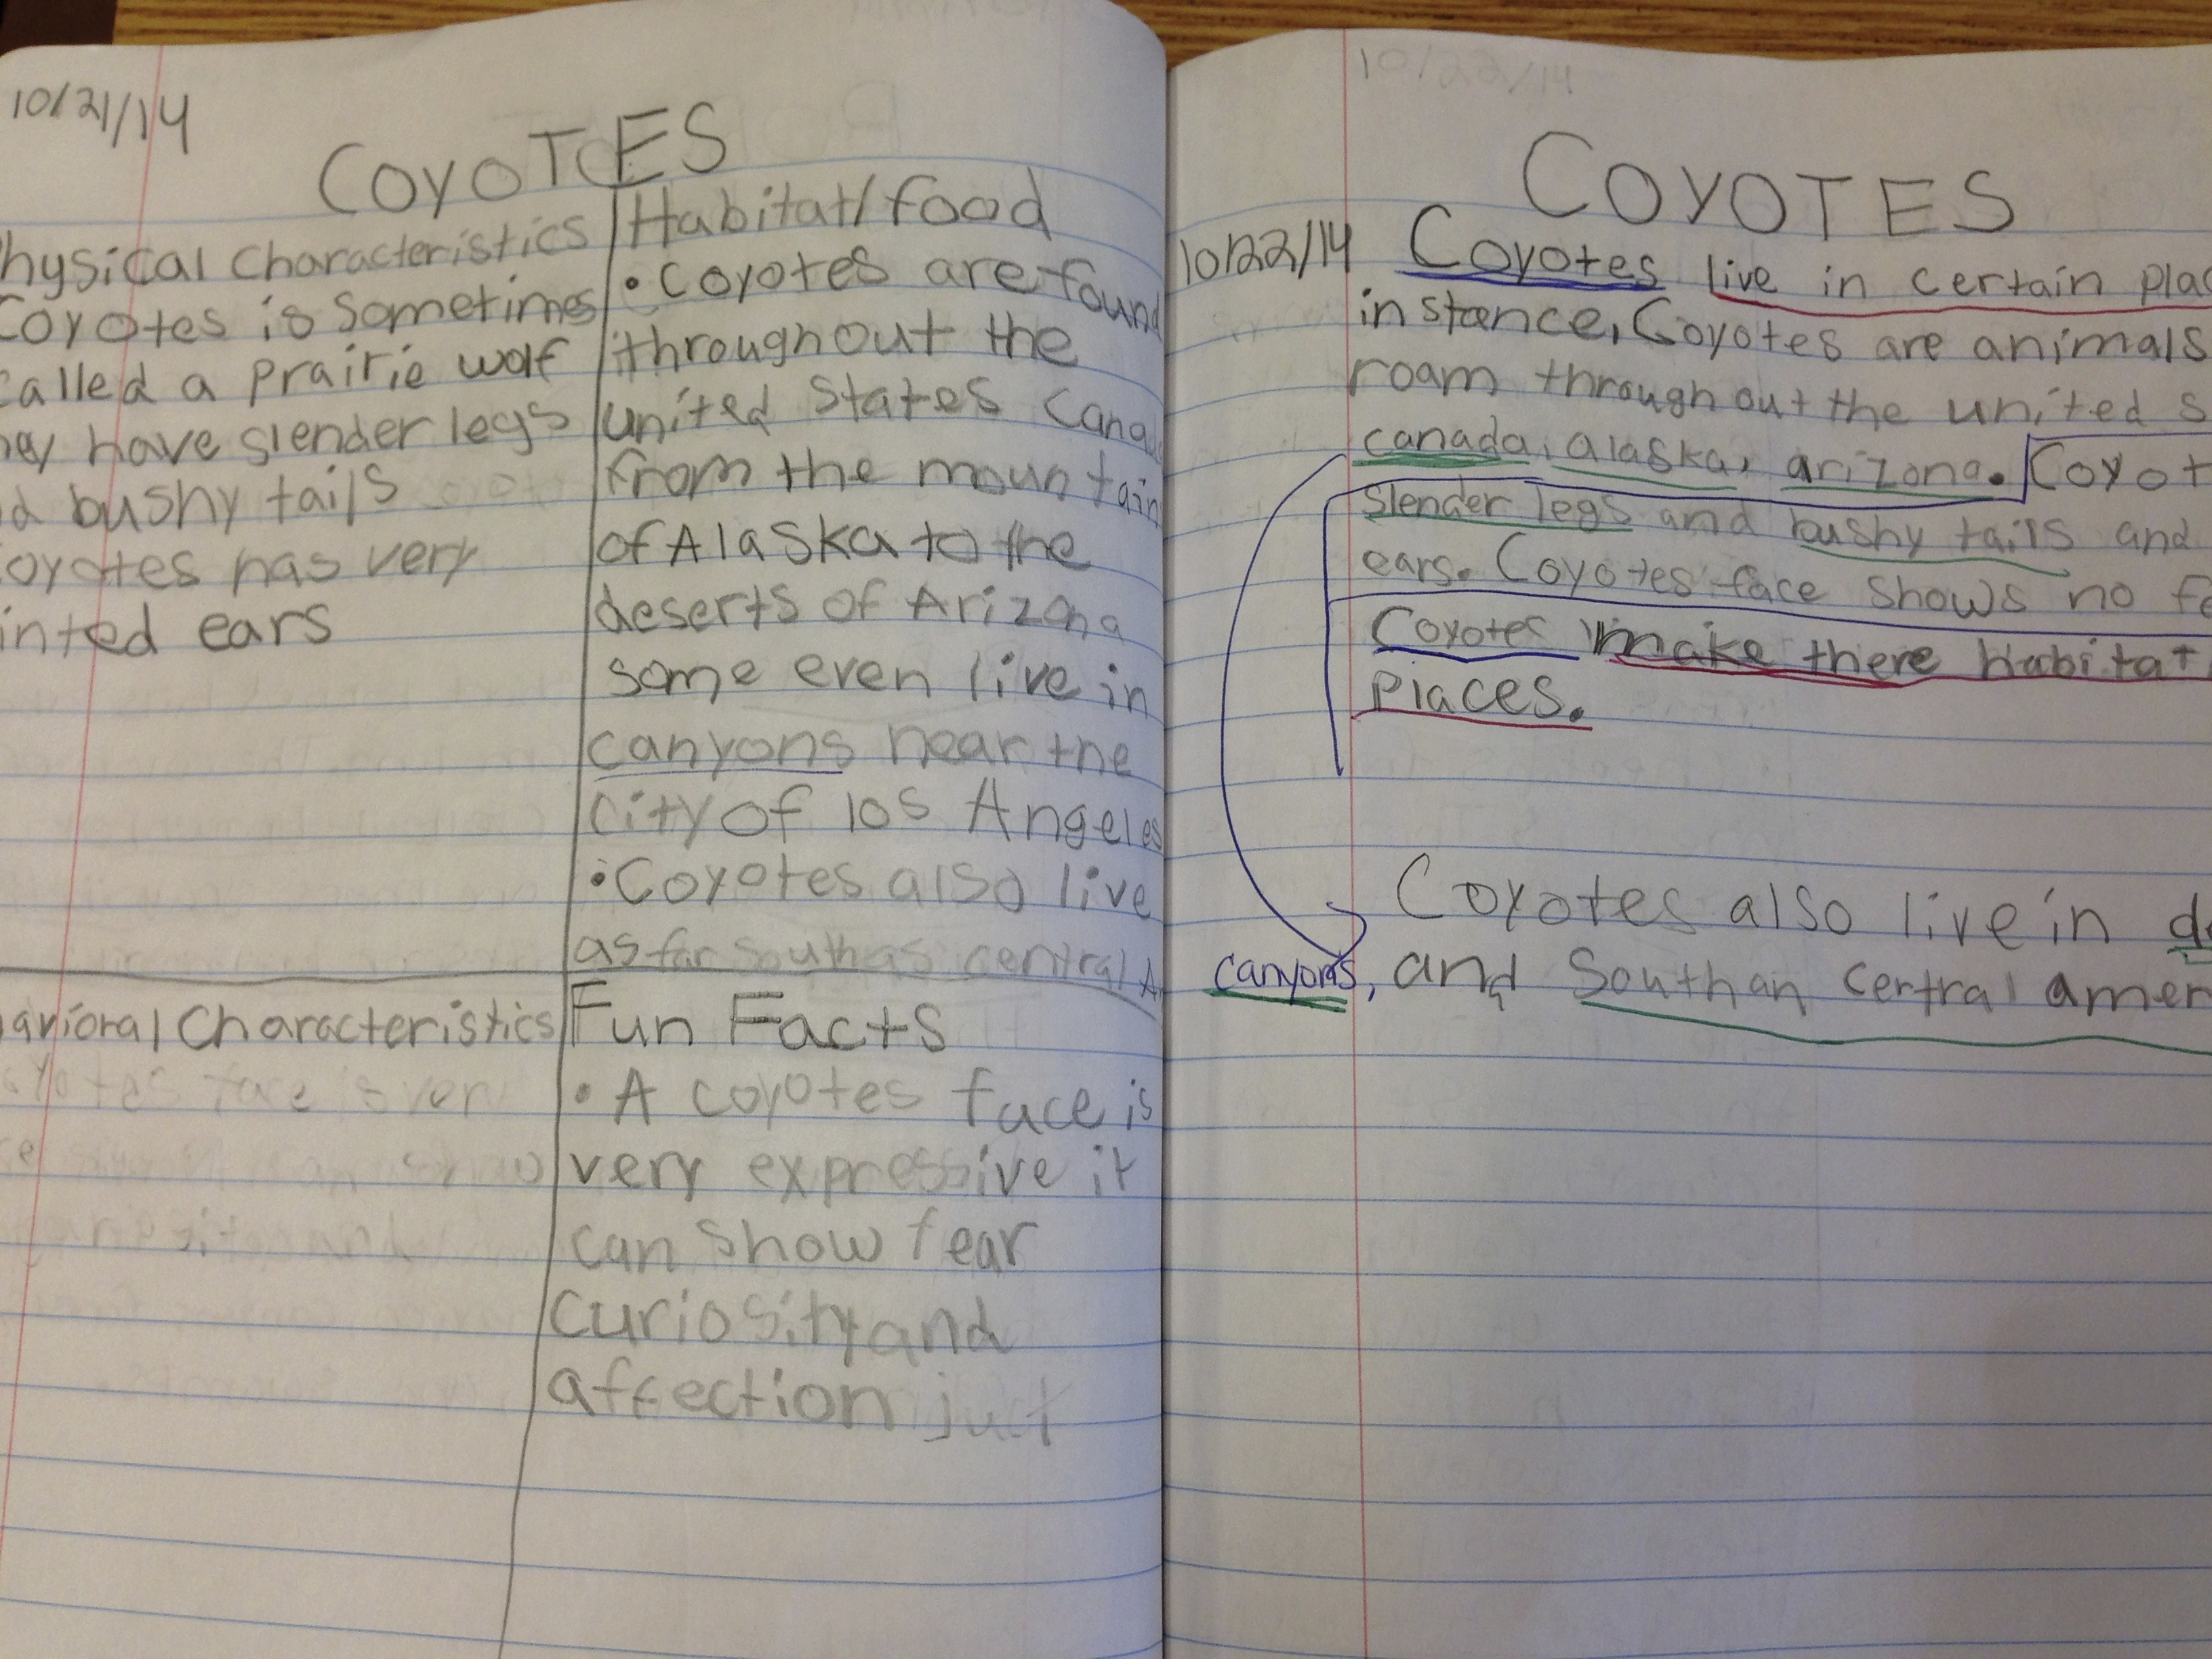 10/21/14
COYOTES
Physical Characteristics
Coyotes is sometimes
called a prairie wolf
they have slender legs
bushy tails
coyotes has very
ears
Habitat/food
• Coyotes are found
throughout the
united States Canada
from the mountain
of Alaska to the
deserts of Arizona
some even live in
canyons near the
city of los Angeles
• Coyotes also live
as far south as central A
Characteristics
face is very
Fun Facts
• A coyotes face is
very expressive it
can show fear
curiosity and
affection just
10/22/14
COYOTES
10/22/14 Coyotes live in certain plac
instance, Coyotes are animals
roam throughout the united s
canada, alaska, arizona. Coyot
slender legs and bushy tails and
ears. Coyotes face shows no fe
Coyotes make there habitat
places.
Coyotes also live in de
canyons, and Southan central amer